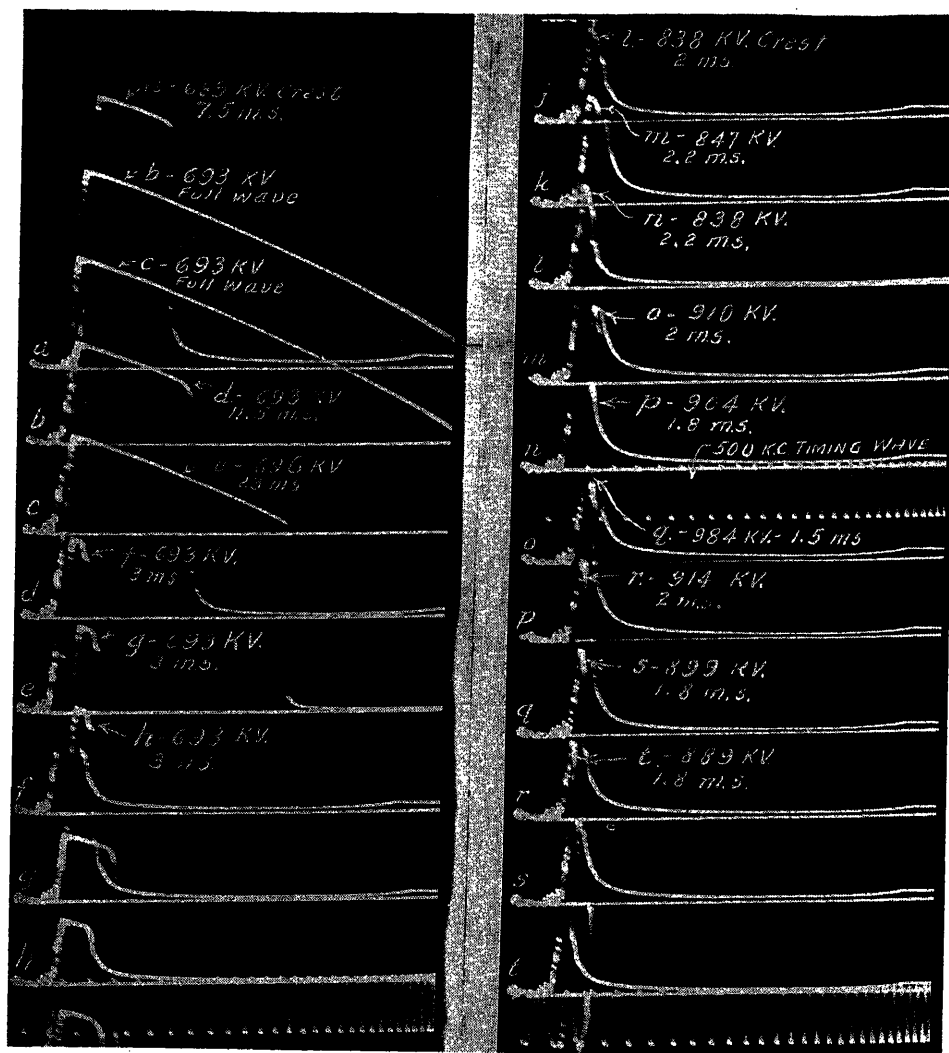 693 KV. Crest
7.5 m.s.
b - 693 KV
Full wave
c - 693 KV
Full wave
a
d - 693 KV
11.5 m.s.
b
696 KV
c
f - 693 KV.
3 ms
d
g - 693 KV.
3 m.s.
e
h - 693 KV.
3 m.s.
f
g
h
838 KV. Crest
2 ms
j
m - 847 KV
2.2 m.s.
k
n - 838 KV.
2.2 m.s.
l
o - 910 KV.
2 m.s.
m
p - 904 KV.
1.8 m.s.
500 KC TIMING WAVE
n
q. - 984 KV. - 1.5 ms
o
r - 914 KV.
2 m.s.
p
s - 899 KV.
1.8 m.s.
q
t. - 889 KV.
1.8 m.s.
r
s
t